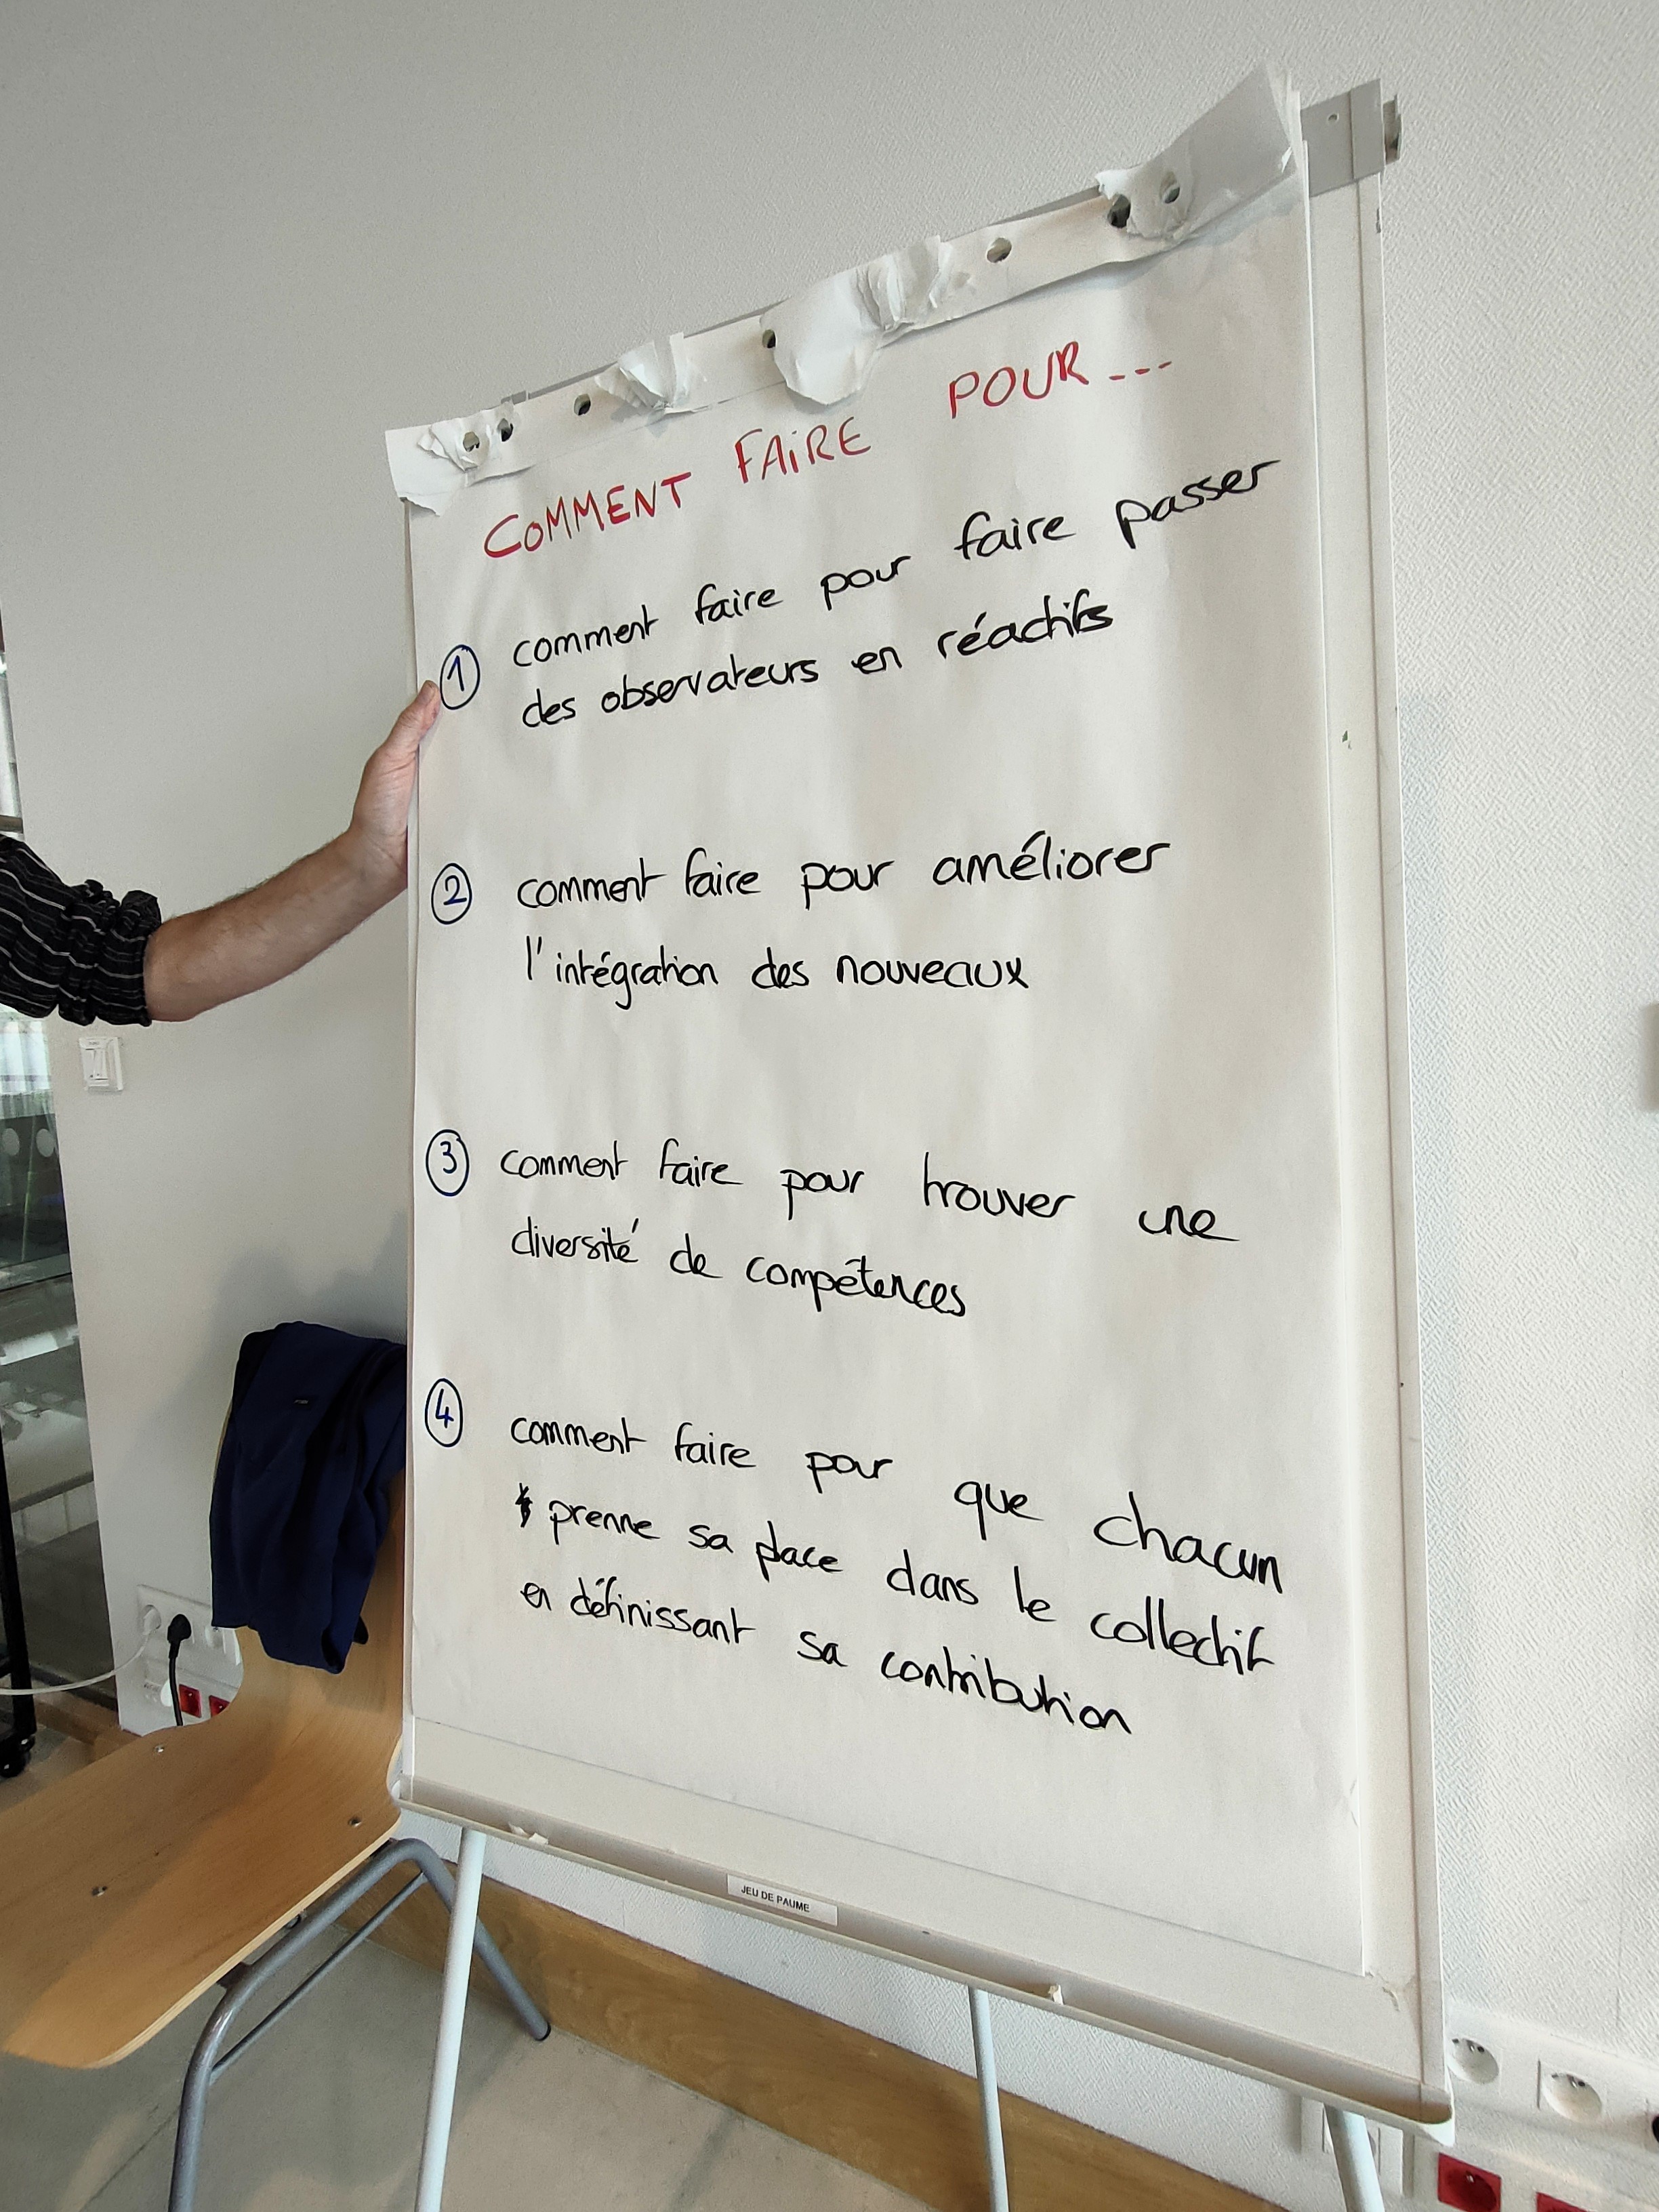 COMMENT FAIRE POUR ---
1 comment faire pour faire passer
des observateurs en réactifs
2 comment faire pour améliorer
l'intégration des nouveaux
3 comment faire pour trouver une
diversité de compétences
4 comment faire pour que chacun
prenne sa place dans le collectif
en définissant sa contribution
JEU DE PAUME